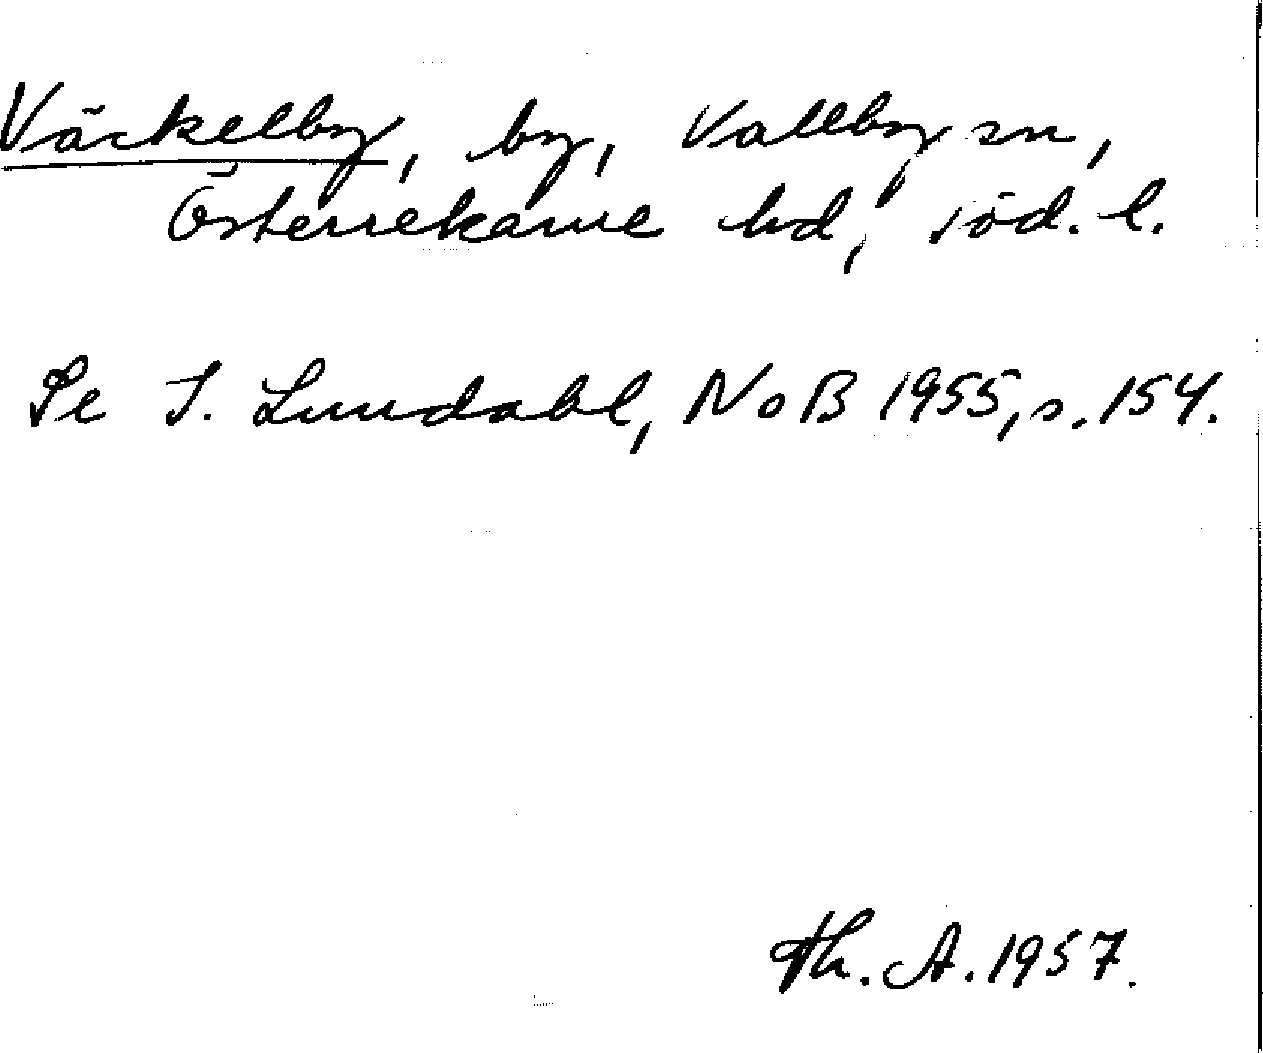 Väckelby, by, Vallby sn,
Österrekarne hd, söd. l.
Se I. Lundahl, NoB 1955, s. 154.
Th. A. 1957.